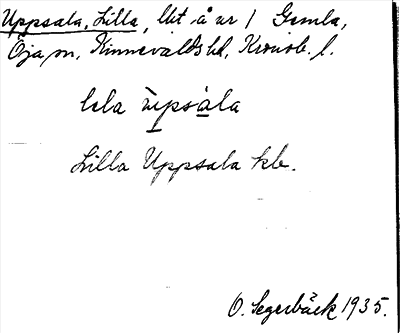 Uppsala, Lilla, lht å nr 1 Gemla,
Öja sn, Kinnevalds hd, Kronob. l.
lila ùpsàla
Lilla Uppsala kb.
O. Segerbäck 1935.